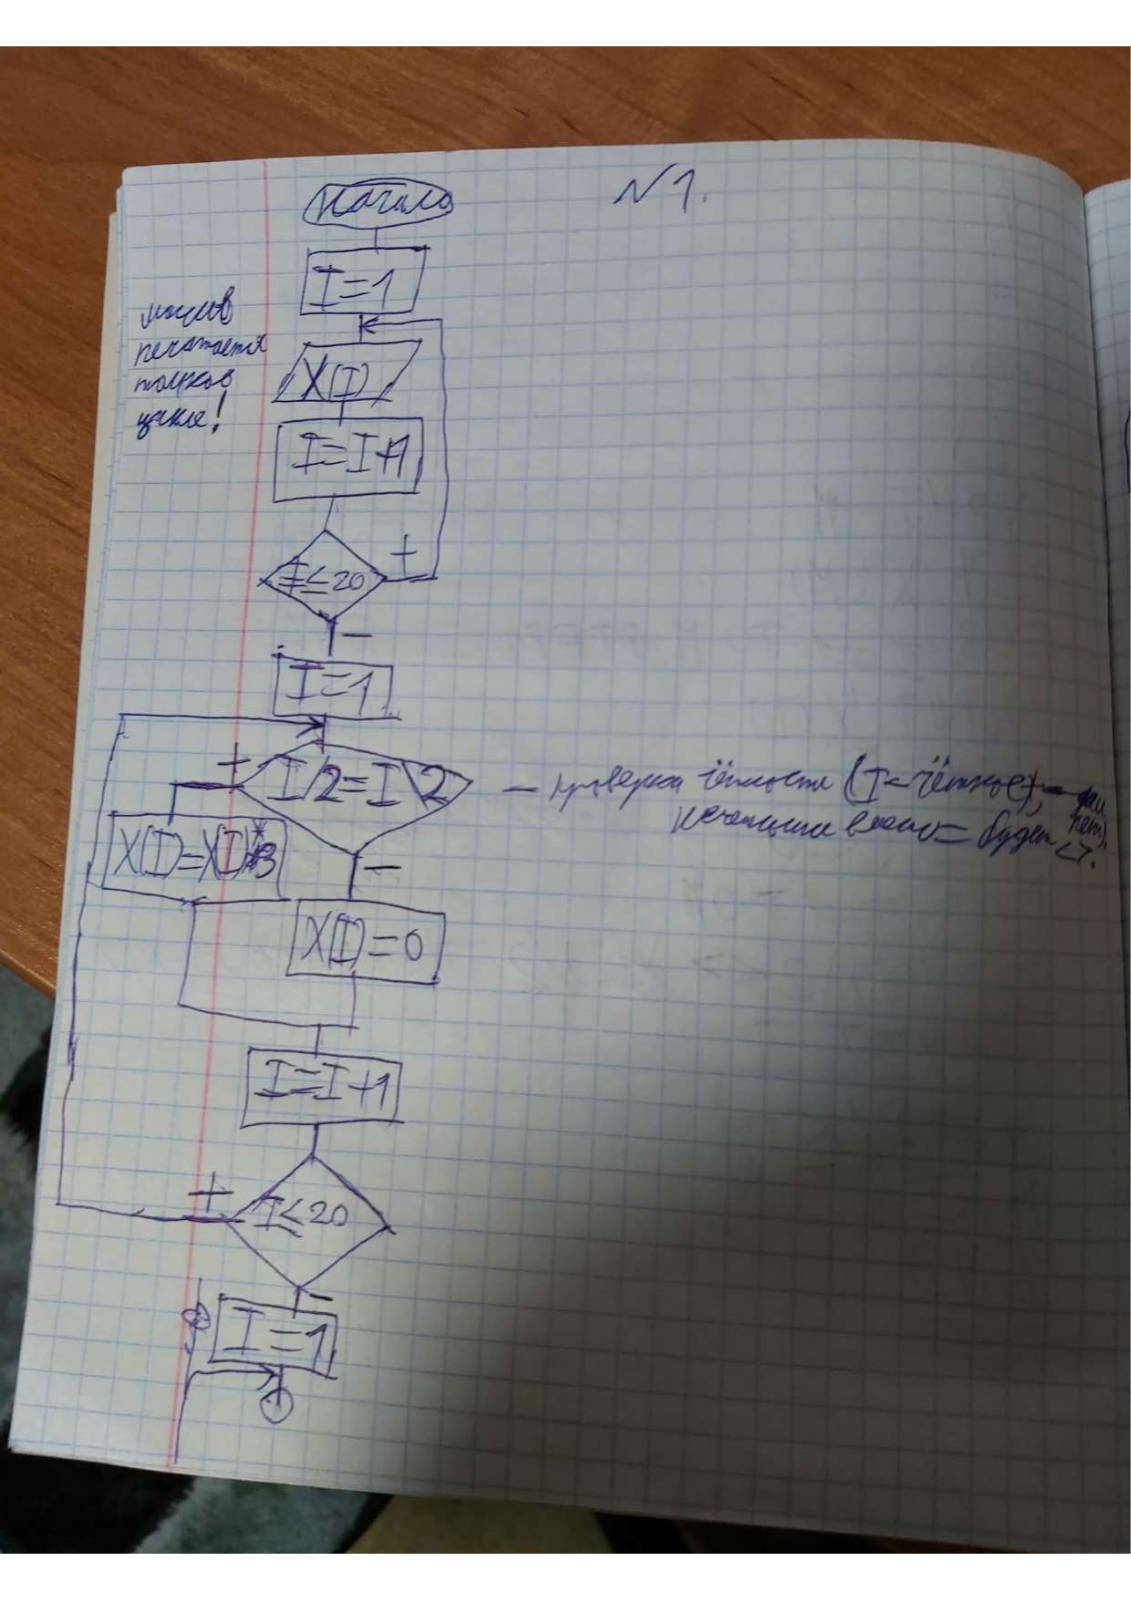 Начало
N1.
I=1
массив
печатается
только в
цикле!
X(I)
I=I+1
I≤20
+
−
I=1
+
I/2=I\2
− проверка чётности (I − чётное), − если нет,
вместо = будет <>.
X(I)=X(I)*3
−
X(I)=0
I=I+1
+
I≤20
−
I=1